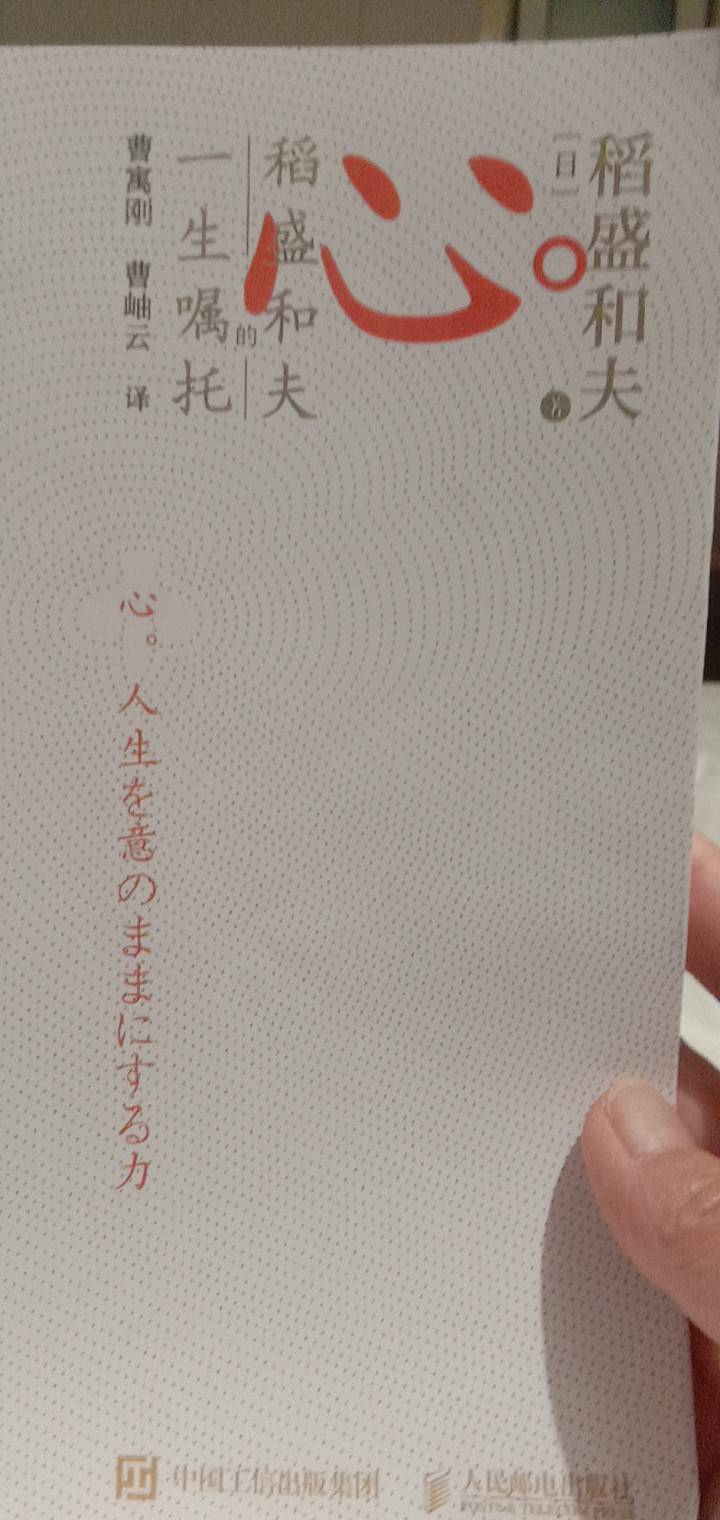 稻盛和夫
[日]
著
心。
稻盛和夫
的
一生嘱托
曹寓刚 曹岫云 译
心。人生を意のままにする力
中国工信出版集团
人民邮电出版社